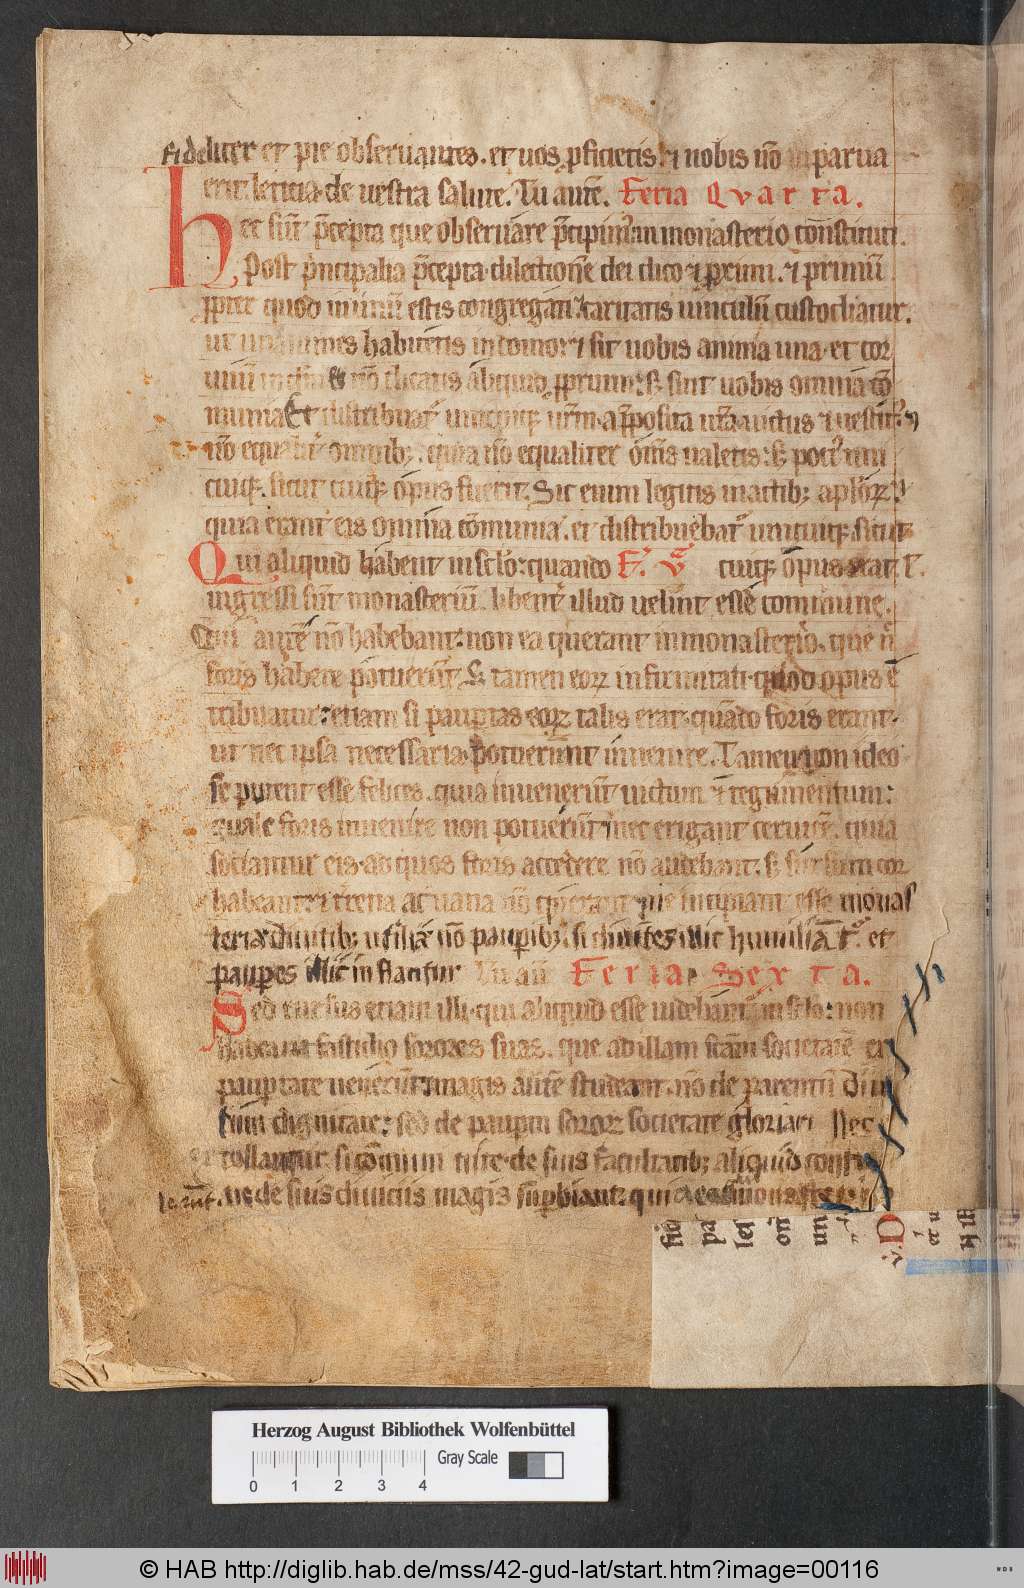 fideliter et pie obseruantes. et uos ꝓficietis ⁊ nobis nō parua
erit leticia de uestra salute. Tu autē. Feria Qvarta.
Hec sūt p̄cepta que obseruare p̄cipimꝰ in monasterio cōnstituti.
Post p̄ncipalia p̄cepta dilectionē dei dico ⁊ ꝓximi. ⁊ primū
ꝓpter quod in unū estis congregati: caritatis uinculū custodiatur.
ut unanimes habitetis in domo: ⁊ sit uobis anima una et cor
unū in deo nō dicatis aliquid ꝓprium: sꝫ sint uobis omnia cō
munia Et distribuat᷑ unicuiqꝫ ur̄m a p̄posita ur̄a uictus ⁊ uestit᷑
nō equalit᷑ omnibꝫ. quia nō equaliter om̄s ualetis: sꝫ pociꝰ uni
cuiqꝫ. sicut cuiqꝫ opus fuerit. Sic enim legitis in actibꝫ apl̄oꝝ
quia erant eis omnia cōmunia. et distribuebat᷑ unicuiqꝫ sicut
Qui aliquid habent in sclo: quando F. v cuiqꝫ opus erat.
ingressi sūt monasteriū. libent᷑ illud uelint esse commune.
Qui autē nō habebant: non ea querant in monasterio. que n̄
foris habere potuerūt Sꝫ tamen eoꝝ infirmitati quod opus ē
tribuatur: etiam si paupertas eoꝝ talis erat quādo foris erant.
ut nec ipsa necessaria potuerunt inuenire. Tamen non ideo
se putent esse felices. quia inuenerūt uictum ⁊ tegimentum:
quale foris inuenire non potuerūt nec erigant ceruicē. quia
sociantur eis ad quos foris accedere nō audebant: sꝫ sursum cor
habeant: ⁊ terrena ac uana nō querant ne incipiant esse monas
teria diuitibꝫ utilia nō pauperibꝫ. si diuites illic humiliāt᷑. et
pauperes illic inflantur Tu aūt Feria Sexta.
Sed rursus etiam illi qui aliquid esse uidebant᷑ in sclo: non
habeant fastidio sorores suas. que ad illam scām societatē ex
paupertate uenerūt: magis autē studeant. nō de parentū diui
tum dignitate: sed de pauperum soroꝝ societate gloriari Nec
extollantur. si cōmuni uite de suis facultatibꝫ aliquid contu
lerūt. ne de suis diuiciis magis suꝑbiant: quia eas monasterio
Herzog August Bibliothek Wolfenbüttel
Gray Scale
0 1 2 3 4
© HAB http://diglib.hab.de/mss/42-gud-lat/start.htm?image=00116